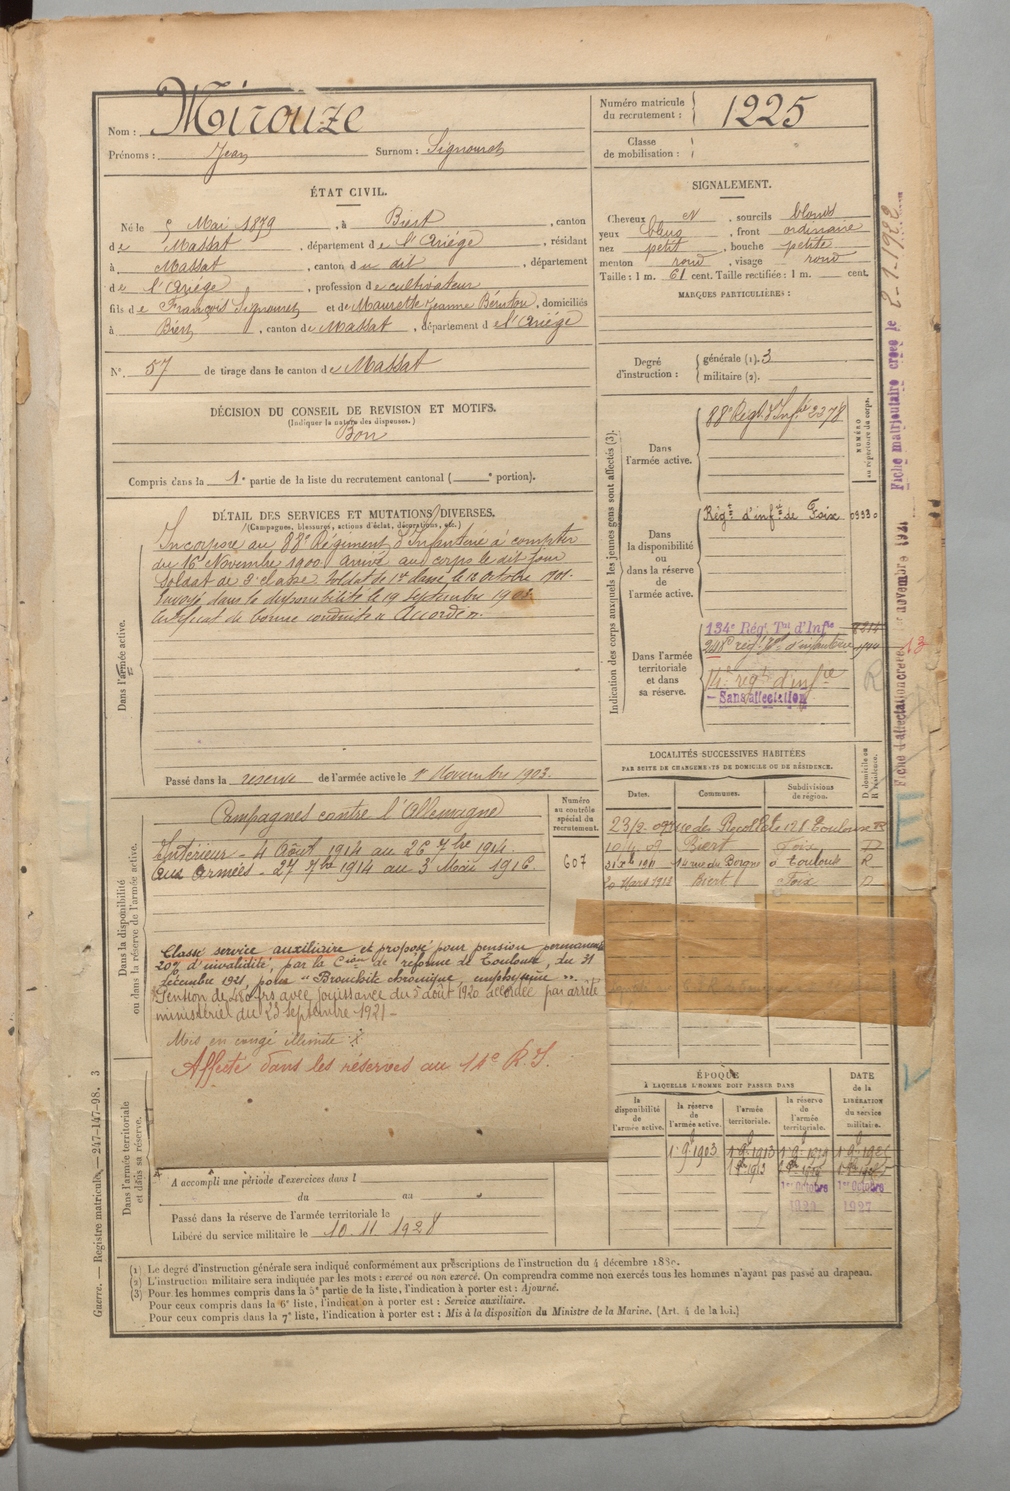 Nom : Mirouze
Prénoms : Jean Surnom : Signouret
Numéro matricule du recrutement : 1225
Classe de mobilisation :
ÉTAT CIVIL.
Né le 5 Mai 1879, à Biert, canton
de Massat, département de l'Ariége, résidant
à Massat, canton du dit, département
de l'Ariége, profession de cultivateur
fils de François Signouret et de Maurette Jeanne, domiciliés
à Biert, canton de Massat, département de l'Ariége
N° 57 de tirage dans le canton de Massat
SIGNALEMENT.
Cheveux et, sourcils blonds
yeux bleus, front ordinaire
nez petit, bouche petite
menton rond, visage rond
Taille : 1 m. 61 cent. Taille rectifiée : 1 m. cent.
MARQUES PARTICULIÈRES :
Degré d'instruction : générale (1). 3
militaire (2).
DÉCISION DU CONSEIL DE REVISION ET MOTIFS.
(Indiquer la nature des dispenses.)
Bon
Compris dans la 1e partie de la liste du recrutement cantonal ( e portion).
DÉTAIL DES SERVICES ET MUTATIONS DIVERSES.
(Campagnes, blessures, actions d'éclat, décorations, etc.)
Dans l'armée active.
Incorporé au 88e Régiment d'Infanterie à compter
du 16 Novembre 1900. Arrivé au corps le dit jour
Soldat de 2e classe. Soldat de 1re classe le 12 Octobre 1901.
Envoyé dans la disponibilité le 19 Septembre 1903.
Certificat de bonne conduite « Accordé ».
Passé dans la réserve de l'armée active le 1er Novembre 1903.
Indication des corps auxquels les jeunes gens sont affectés (3).
NUMÉRO au répertoire du corps.
Dans l'armée active.
88e Régt d'Infie 2378
Dans la disponibilité ou dans la réserve de l'armée active.
Régt d'infie de Foix
Dans l'armée territoriale et dans sa réserve.
134e Régt Tal d'Infie
14e régt d'infie
Sans affectation
R
Fiche matriculaire créée le
Fiche d'affectation créée novembre 1921
Dans la disponibilité ou dans la réserve de l'armée active.
Campagnes contre l'Allemagne
Intérieur - 4 Août 1914 au 26 7bre 1914.
Aux Armées - 27 7bre 1914 au 3 Mai 1916.
Numéro au contrôle spécial du recrutement.
607
Classé service auxiliaire et proposé pour pension permanente
20% d'invalidité, par la Cion de réforme de Toulouse, du 31
décembre 1921, pour « Bronchite chronique emphysème ».
Pension de 480 frs avec jouissance du 5 août 1920 accordée par arrêté
ministériel du 23 septembre 1921 -
Mis en congé illimité
Affecté dans les réserves au 14e R.I.
LOCALITÉS SUCCESSIVES HABITÉES
PAR SUITE DE CHANGEMENTS DE DOMICILE OU DE RÉSIDENCE.
Dates. Communes. Subdivisions de région. D. domicile ou R. résidence.
Toulouse R
Biert Foix D
Toulouse R
20 Mars 1912 Biert Foix D
ÉPOQUE
À LAQUELLE L'HOMME DOIT PASSER DANS
DATE de la LIBÉRATION du service militaire.
la disponibilité de l'armée active.
la réserve de l'armée active.
l'armée territoriale.
la réserve de l'armée territoriale.
1er Octobre 1er Octobre
1927
Dans l'armée territoriale et dans sa réserve.
A accompli une période d'exercices dans l
du au
Passé dans la réserve de l'armée territoriale le
Libéré du service militaire le 10 11 1928
(1) Le degré d'instruction générale sera indiqué conformément aux prescriptions de l'instruction du 4 décembre 1889.
(2) L'instruction militaire sera indiquée par les mots : exercé ou non exercé. On comprendra comme non exercés tous les hommes n'ayant pas passé au drapeau.
(3) Pour les hommes compris dans la 5e partie de la liste, l'indication à porter est : Ajourné.
Pour ceux compris dans la 6e liste, l'indication à porter est : Service auxiliaire.
Pour ceux compris dans la 7e liste, l'indication à porter est : Mis à la disposition du Ministre de la Marine. (Art. 4 de la loi.)
Guerre. — Registre matricule. — 247-147-98. 3